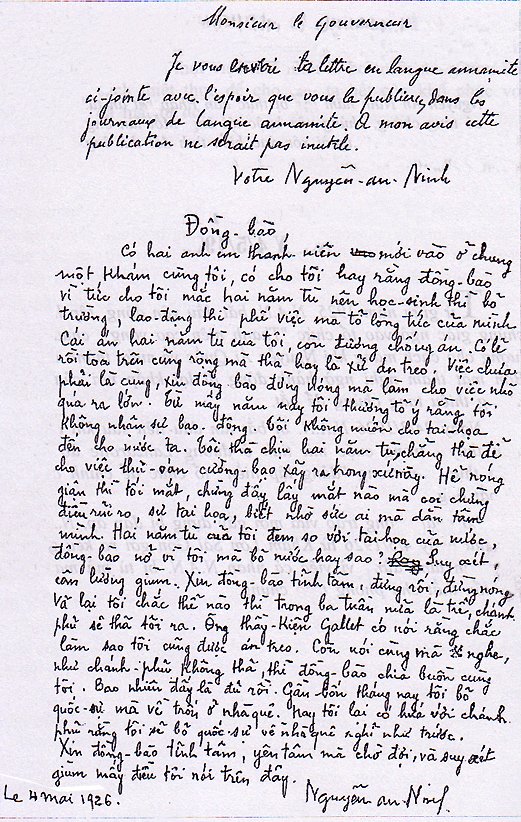 Monsieur le Gouverneur
Je vous envoie la lettre en langue annamite
ci-jointe avec l'espoir que vous la publierez dans les
journaux de langue annamite. A mon avis cette
publication ne serait pas inutile.
Votre Nguyễn-an-Ninh
Đồng-bào,
Có hai anh em thanh niên mới vào ở chung
một khám cùng tôi, có cho tôi hay rằng đồng-bào
vì tức cho tôi mắc hai năm tù nên học-sinh thì bỏ
trường, lao-động thì phế việc mà tỏ lòng tức của mình.
Cái án hai năm tù của tôi, còn đương chống án. Có lẽ
rồi toà trên cũng rộng mà tha hay là xử án treo. Việc chưa
phải là cùng, xin đồng-bào đừng nóng mà làm cho việc nhỏ
quá ra lớn. Từ mấy năm nay tôi thường tỏ ý rằng tôi
không nhận sự bạo-động. Tôi không muốn cho tai-họa
đến cho nước ta. Tôi thà chịu hai năm tù, chẳng thà để
cho việc thù-oán cường-bạo xảy ra trong xứ này. Hễ nóng
giận thì tối mắt, chừng đấy lấy mắt nào mà coi chừng
điều rủi ro, sự tai hoạ, biết nhờ sức ai mà dằn tâm
mình. Hai năm tù của tôi đem so với tai-hoạ của nước,
đồng-bào nỡ vì tôi mà bỏ nước hay sao? Suy xét,
cân lường giùm. Xin đồng-bào tĩnh tâm, đừng rối, đừng nóng
Vả lại tôi chắc thế nào thì trong ba tuần nữa là trễ, chánh
phủ sẽ tha tôi ra. Ông thầy-kiện Gallet có nói rằng chắc
làm sao tôi cũng được án treo. Còn nói cùng mà nghe,
như chánh-phủ không tha, thì đồng-bào chia buồn cùng
tôi. Bao nhiêu đấy là đủ rồi. Gần bốn tháng nay tôi bỏ
quốc-sự mà về trốn ở nhà quê. Nay tôi lại có hứa với chánh
phủ rằng tôi sẽ bỏ quốc-sự về nhà quê nghỉ như trước.
Xin đồng-bào tĩnh tâm, yên tâm mà chờ đợi, và suy xét
giùm mấy điều tôi nói trên đây.
Le 4 mai 1926.
Nguyễn an Ninh